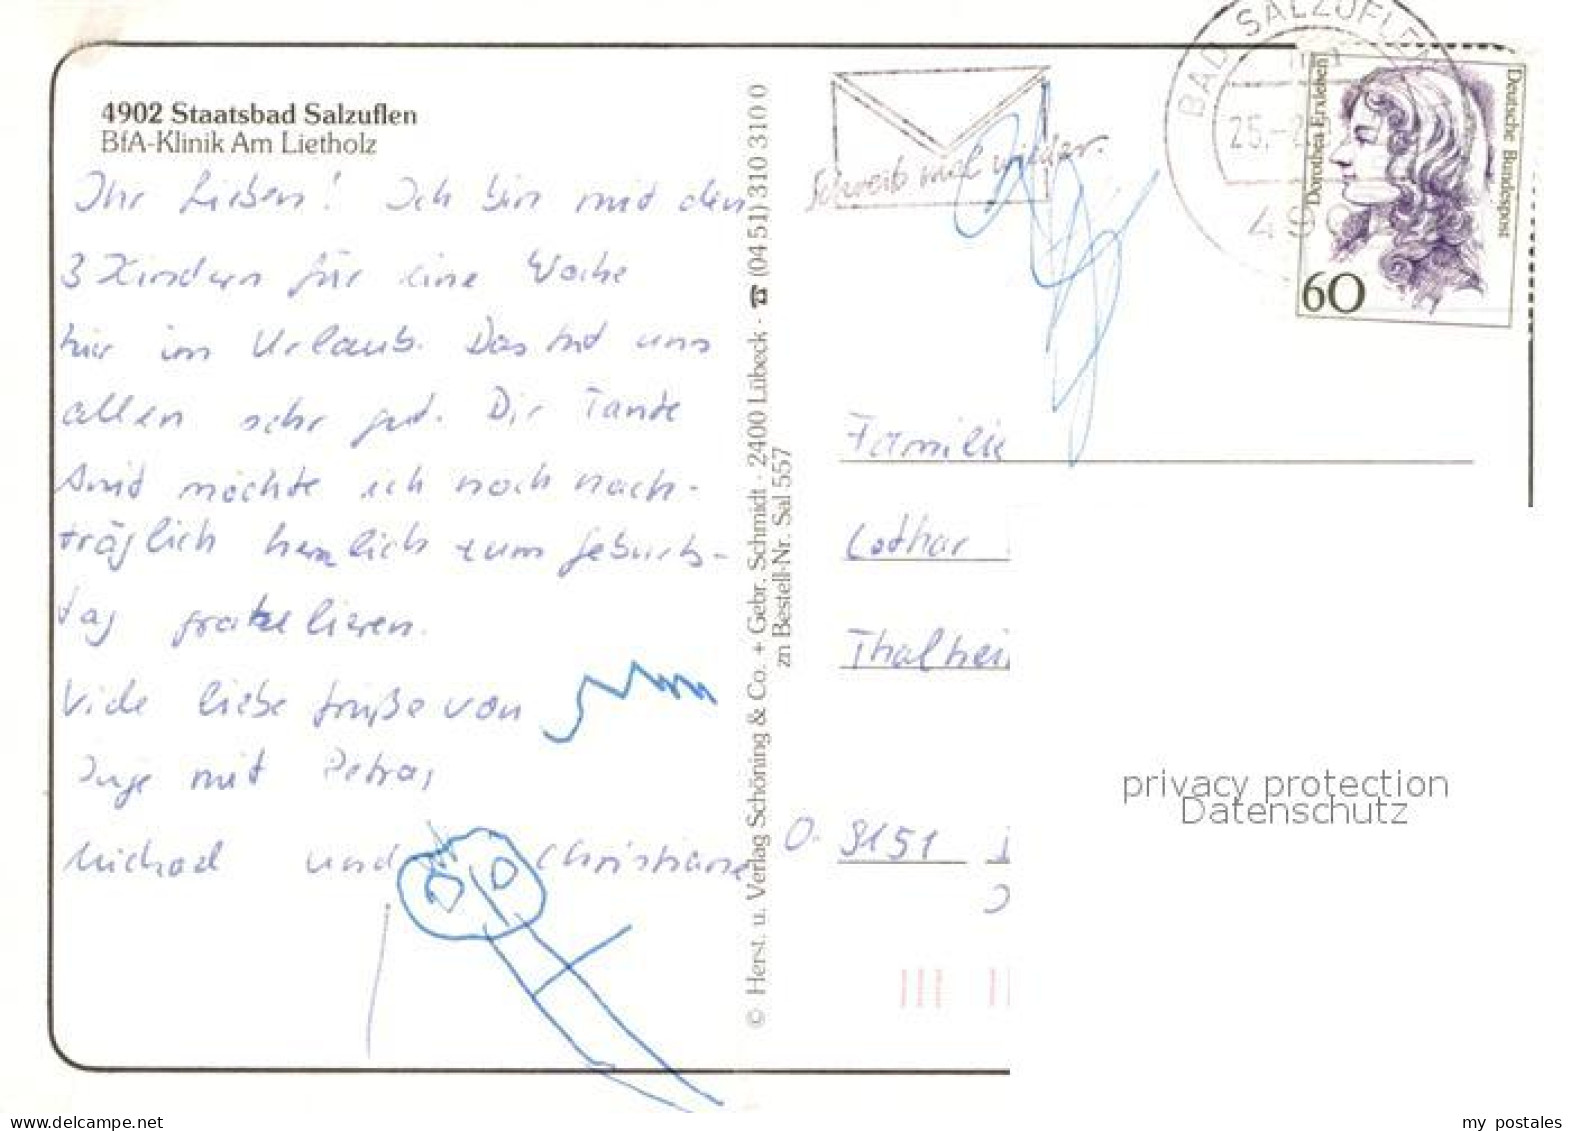 4902 Staatsbad Salzuflen
BfA-Klinik Am Lietholz
Ihr Lieben! Ich bin mit den
3 Kindern für eine Woche
hier im Urlaub. Das tut uns
allen sehr gut. Dir Tante
möchte ich noch nach-
träglich herzlich zum Geburts-
tag gratulieren.
Viele liebe Grüße von
Inge mit Petra,
Michael und Christiane
© Herst. u. Verlag Schöning & Co. + Gebr. Schmidt · 2400 Lübeck · ☎ (04 51) 310 310 0
zn Bestell-Nr. Sal 557
Schreib mal wieder.
BAD SALZUFLEN
25.-2
49
Dorothea Erxleben
Deutsche Bundespost
60
Familie
Lothar
Thalhei
O-9151
privacy protection
Datenschutz
oldthing.de
my postales